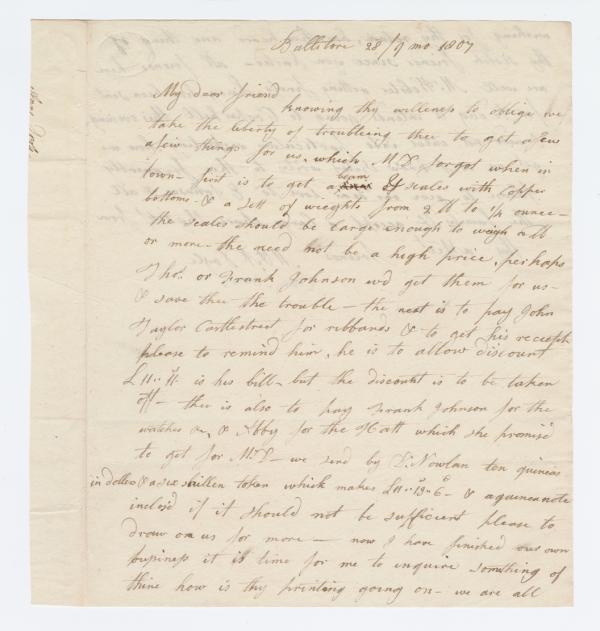 Ballitore 28/9 mo 1807
My dear friend
knowing thy willeness to oblige we
take the liberty of troubling thee to get a few
a few things for us, which M D forgot when in
town - first is to get a beam & scales with copper
bottoms - & a sett of weights from 2 ll to 1/4 ounce -
the scales should be large enough to weigh ll
or more - the need not be a high price, perhaps
Thos. or Frank Johnson wd get them for us -
& save thee the trouble - the next is to pay John
Taylor Castlestreet for ribbands & to get his receipt
please to remind him, he is to allow discount
£11 .. is his bill - but the discount is to be taken
off - thee is also to pay Frank Johnson for the
watches &c, & Abby for the Hatt which she promisd
to get for M D - we send by Dr. Nowlan ten guineas
in dollers & a six shillen token which makes £11 .. 13 .. 6 - & a guinea note
inclosd if it should not be sufficient please to
draw on us for more - now I have finished our own
business it is time for me to enquire something of
thine how is thy printing going on - we are all